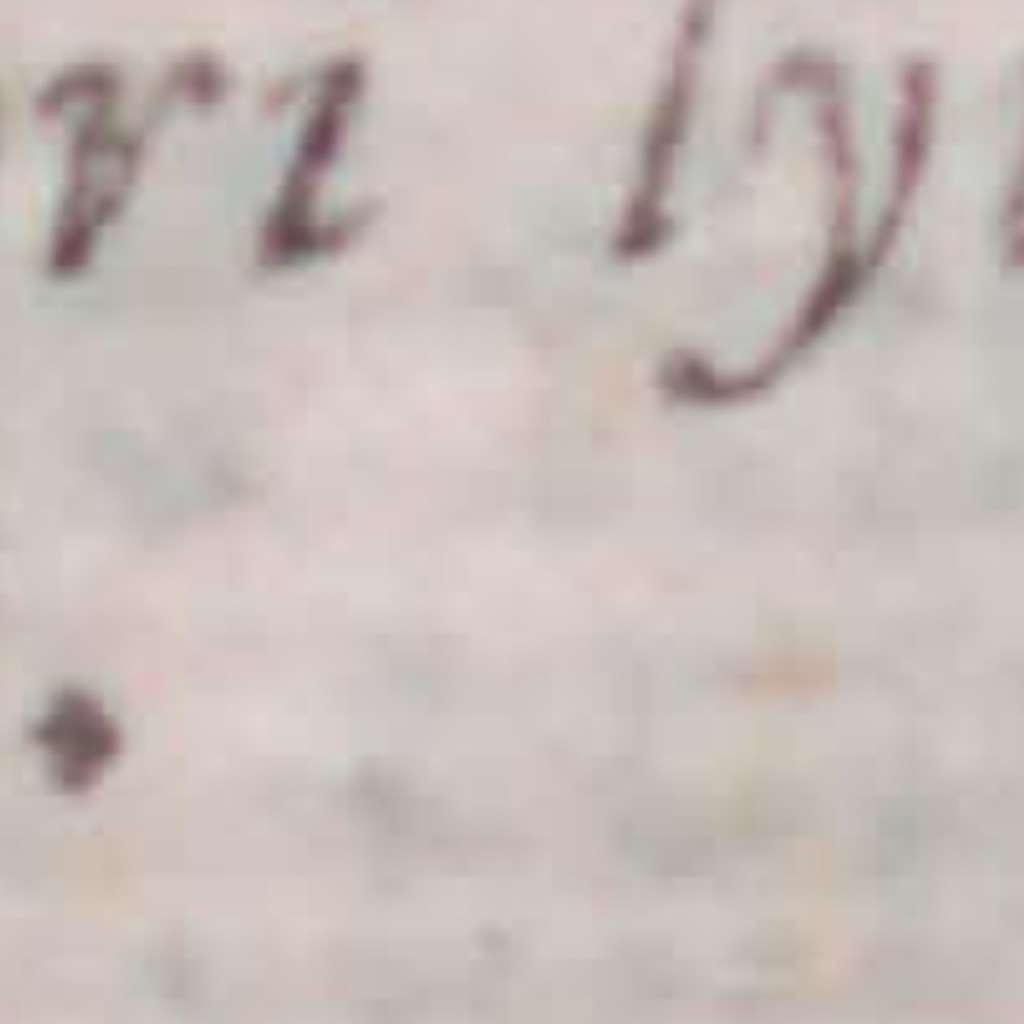 ri ly
.